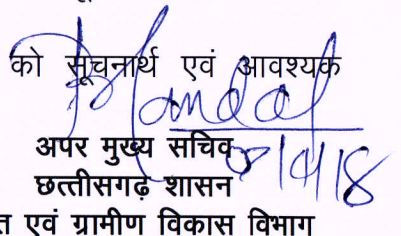 को सूचनार्थ एवं आवश्यक
Mandal
अपर मुख्य सचिव
छत्तीसगढ़ शासन
एवं ग्रामीण विकास विभाग